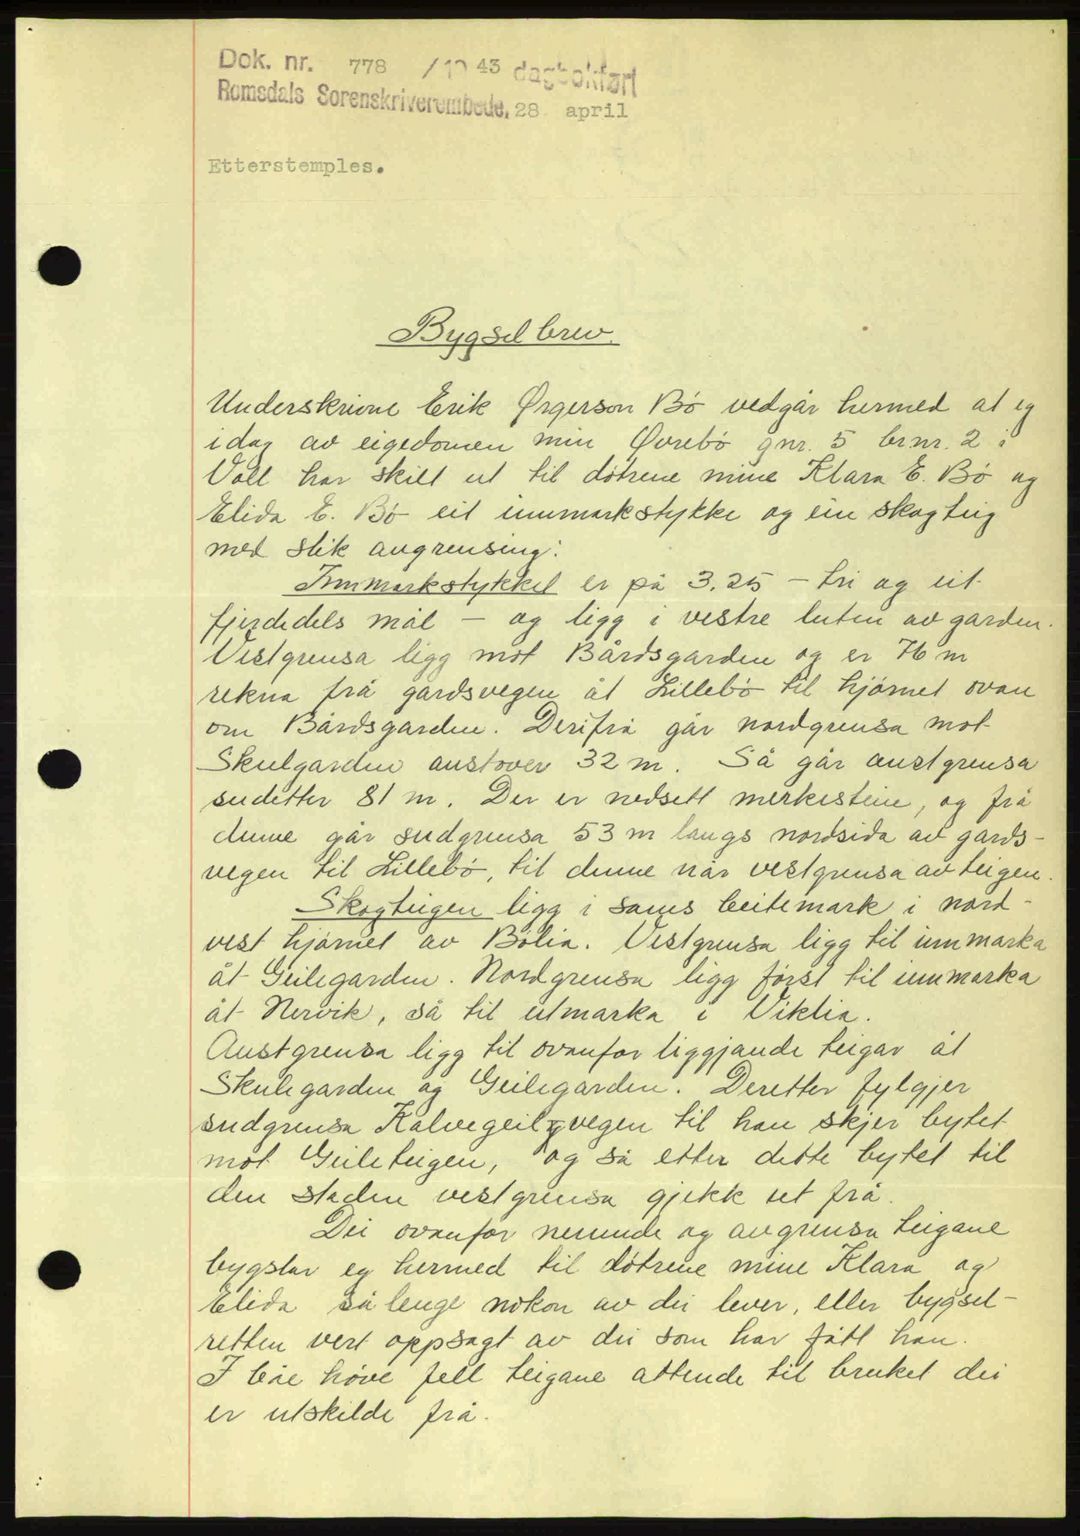 Dok. nr. 778 / 19 43 dagbokført
Romsdals Sorenskriverembede, 28 april
Etterstemples.
Bygselbrev.
Underskrivne Erik Ørgerson Bø vedgår hermed at eg
idag av eigedomen min Øvrebø gnr. 5 brnr. 2 i
Voll har skilt ut til døtrene mine Klara E. Bø og
Elida E. Bø eit innmarkstykke og ein skogteig
med slik avgrensing:
Innmarkstykket er på 3.25 - tri og eit
fjerdedels mål - og ligg i vestre luten av garden.
Vestgrensa ligg mot Bårdsgarden og er 76 m
rekna frå gardsvegen åt Lillebø til hjørnet ovan
om Bårdsgarden. Derifrå går nordgrensa mot
Skulgarden austover 32 m. Så går austgrensa
sudetter 81 m. Der er nedsett merkestein, og frå
denne går sudgrensa 53 m langs nordsida av gards-
vegen til Lillebø, til denne når vestgrensa av teigen.
Skogteigen ligg i sams beitemark i nord-
vest hjørnet av Bølia. Vestgrensa ligg til innmarka
åt Geilegarden. Nordgrensa ligg først til innmarka
åt Nervik, så til utmarka i Viklia.
Austgrensa ligg til ovanfor liggjande teigar åt
Skulegarden og Geilegarden. Deretter fylgjer
sudgrensa Kalvegeilvegen til han skjer bytet
mot Geileteigen, og så etter dette bytet til
den staden vestgrensa gjekk ut frå.
Dei ovanfor nemnde og avgrensa teigane
bygslar eg hermed til døtrene mine Klara og
Elida så lenge nokon av dei lever, eller bygsel-
retten vert oppsagt av dei som har fått han.
I báe høve fell teigane attende til bruket dei
er utskilde frå.